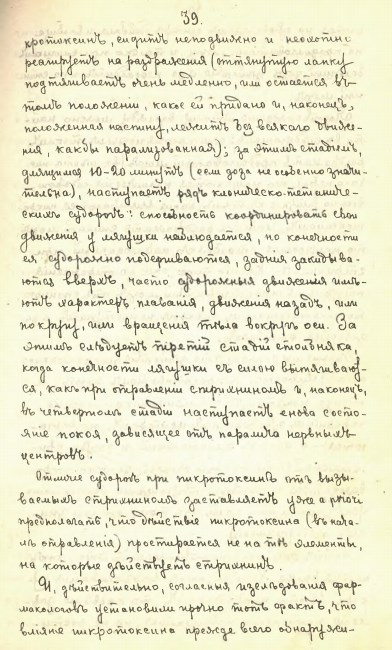 39.
кротоксинъ, сидитъ неподвижно и неохотно
реагируетъ на раздраженія (оттянутую лапку
подтягиваетъ очень медленно, или остается въ
томъ положеніи, какое ей придано и, наконецъ,
положенная на спину, лежитъ безъ всякаго движе-
нія, какъ бы парализованная); за этимъ стадіемъ,
длящимся 10-20 минутъ (если доза не особенно значи-
тельна), наступаетъ рядъ клоническо-тетаниче-
скихъ судорогъ: способность координировать свои
движенія у лягушки наблюдается, но конечности
ея судорожно подергиваются, заднія закидыва-
ются вверхъ, часто судорожныя движенія имѣ-
ютъ характеръ плаванія, движенія назадъ, или
по кругу, или вращенія тѣла вокругъ оси. За
этимъ слѣдуетъ третій стадій столбняка,
когда конечности лягушки съ силою вытягивают-
ся, какъ при отравленіи стрихниномъ и, наконецъ,
въ четвертомъ стадіи наступаетъ снова состо-
яніе покоя, зависящее отъ паралича нервныхъ
центровъ.
Отличіе судорогъ при пикротоксинѣ отъ вызы-
ваемыхъ стрихниномъ заставляетъ уже a priori
предполагать, что дѣйствіе пикротоксина (въ нача-
лѣ отравленія) простирается не на тѣ элементы,
на которые дѣйствуетъ стрихнинъ.
И, дѣйствительно, согласныя изслѣдованія фар-
макологовъ установили прочно тотъ фактъ, что
вліяніе пикротоксина прежде всего обнаружи-